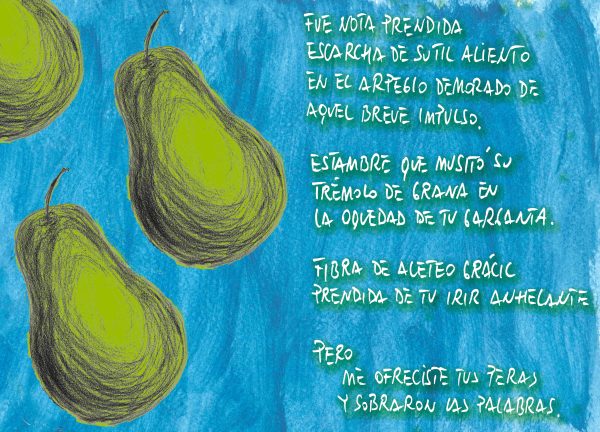 FUE NOTA PRENDIDA
ESCARCHA DE SUTIL ALIENTO
EN EL ARPEGIO DEMORADO DE
AQUEL BREVE IMPULSO.
ESTAMBRE QUE MUSITÓ SU
TRÉMOLO DE GRANA EN
LA OQUEDAD DE TU GARGANTA.
FIBRA DE ALETEO GRÁCIL
PRENDIDA DE TU IRIR ANHELANTE
PERO
ME OFRECISTE TUS PERAS
Y SOBRARON LAS PALABRAS.